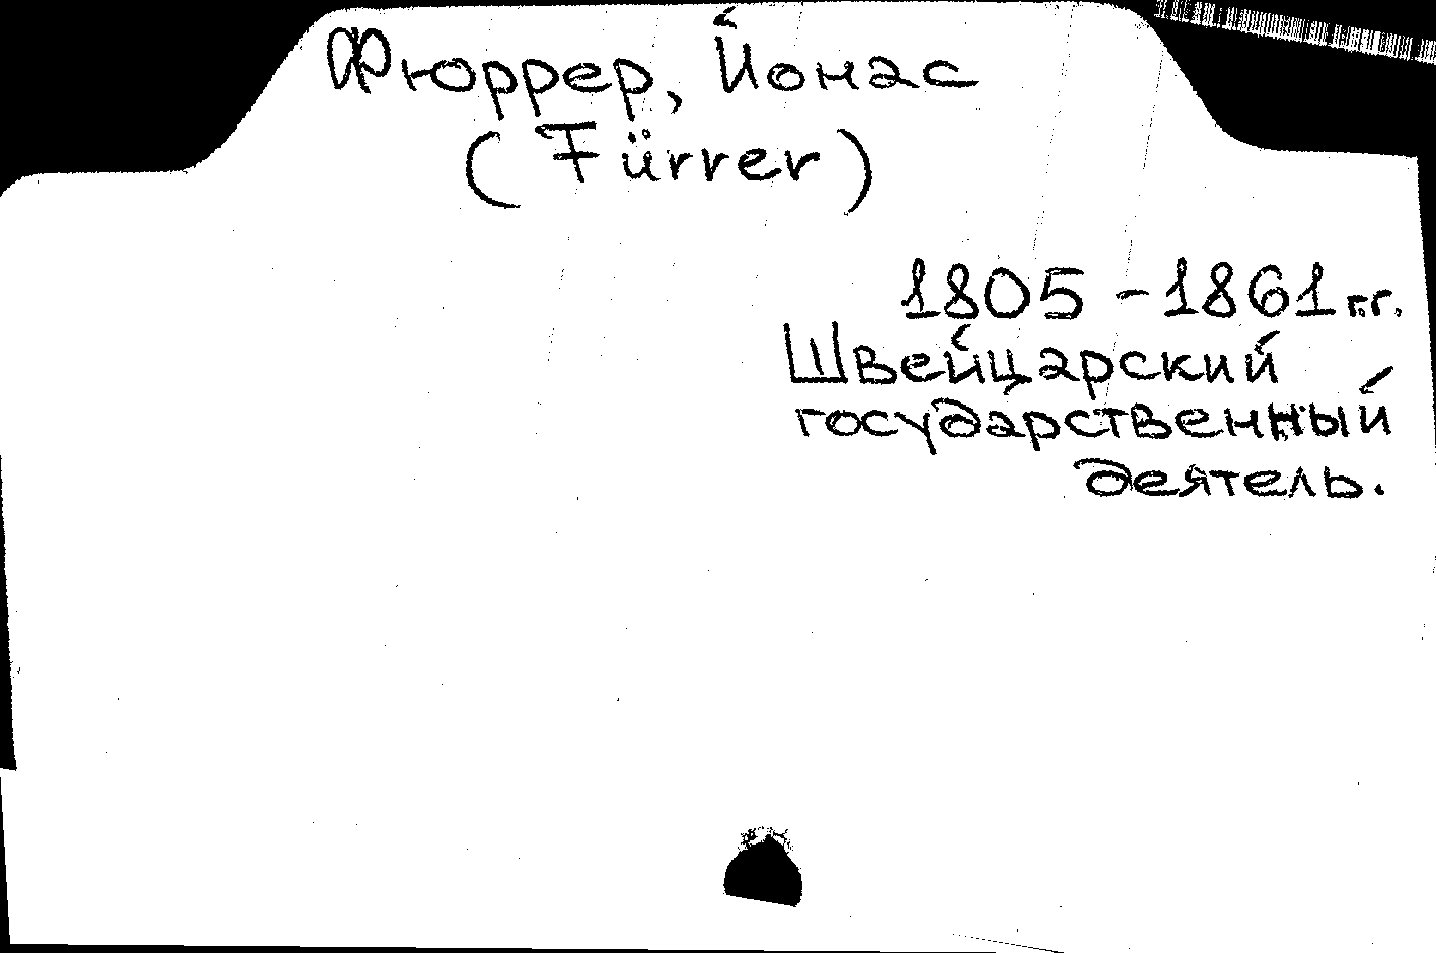 Фюррер, Йонас
(Fürrer)
1805-1861 г.г.
Швейцарский
государственный
деятель.